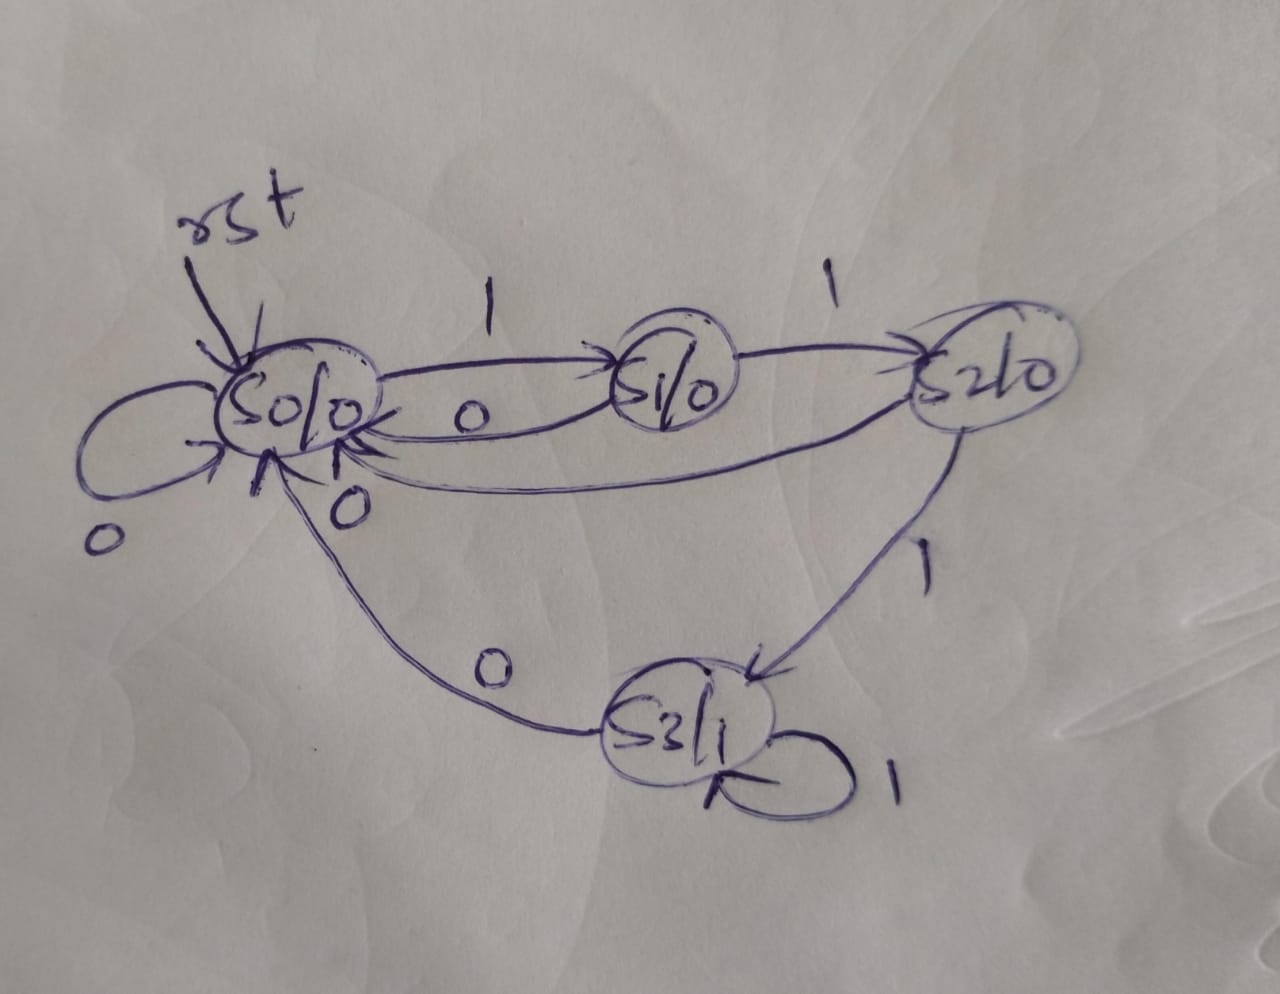 rst
1
1
S0/0
S1/0
S2/0
0
0
0
1
0
S3/1
1